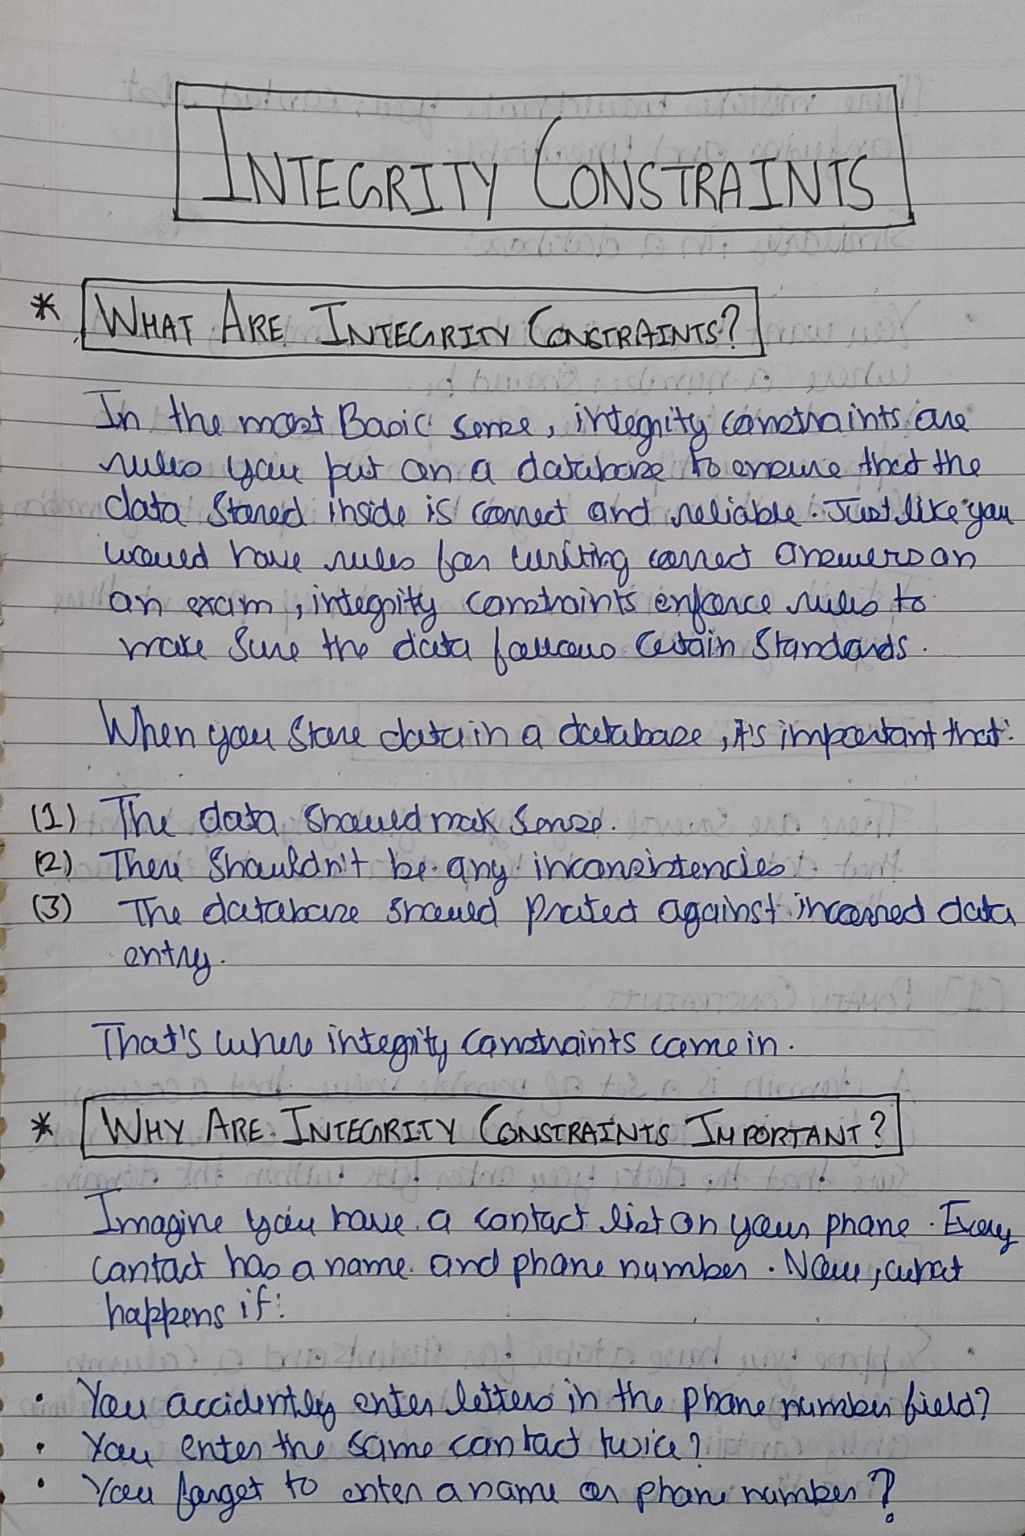 INTEGRITY CONSTRAINTS
* WHAT ARE INTEGRITY CONSTRAINTS?
In the most Basic sense, integrity constraints are
rules you put on a database to ensure that the
data stored inside is correct and reliable. Just like you
would have rules for writing correct answers on
an exam, integrity constraints enforce rules to
make sure the data follows certain standards.
When you store data in a database, it's important that:
(1) The data should mak sense.
(2) There shouldn't be any inconsistencies.
(3) The database should protect against incorrect data
entry.
That's where integrity constraints come in.
* WHY ARE INTEGRITY CONSTRAINTS IMPORTANT?
Imagine you have a contact list on your phone. Every
contact has a name and phone number. Now, what
happens if:
• You accidently enter letters in the phone number field?
• You enter the same contact twice?
• You forget to enter a name or phone number?